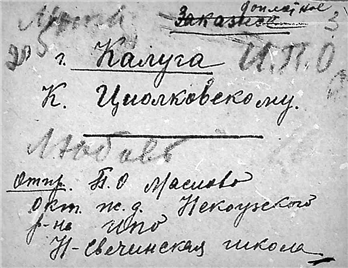 доплатное
Заказное 3
20 И.П.О
г. Калуга
К. Циолковскому.
Любовь
Отпр. П.О Маслово
Окт. ж.д. Некоузского
р-на ИПО
Н-Свечинская школа